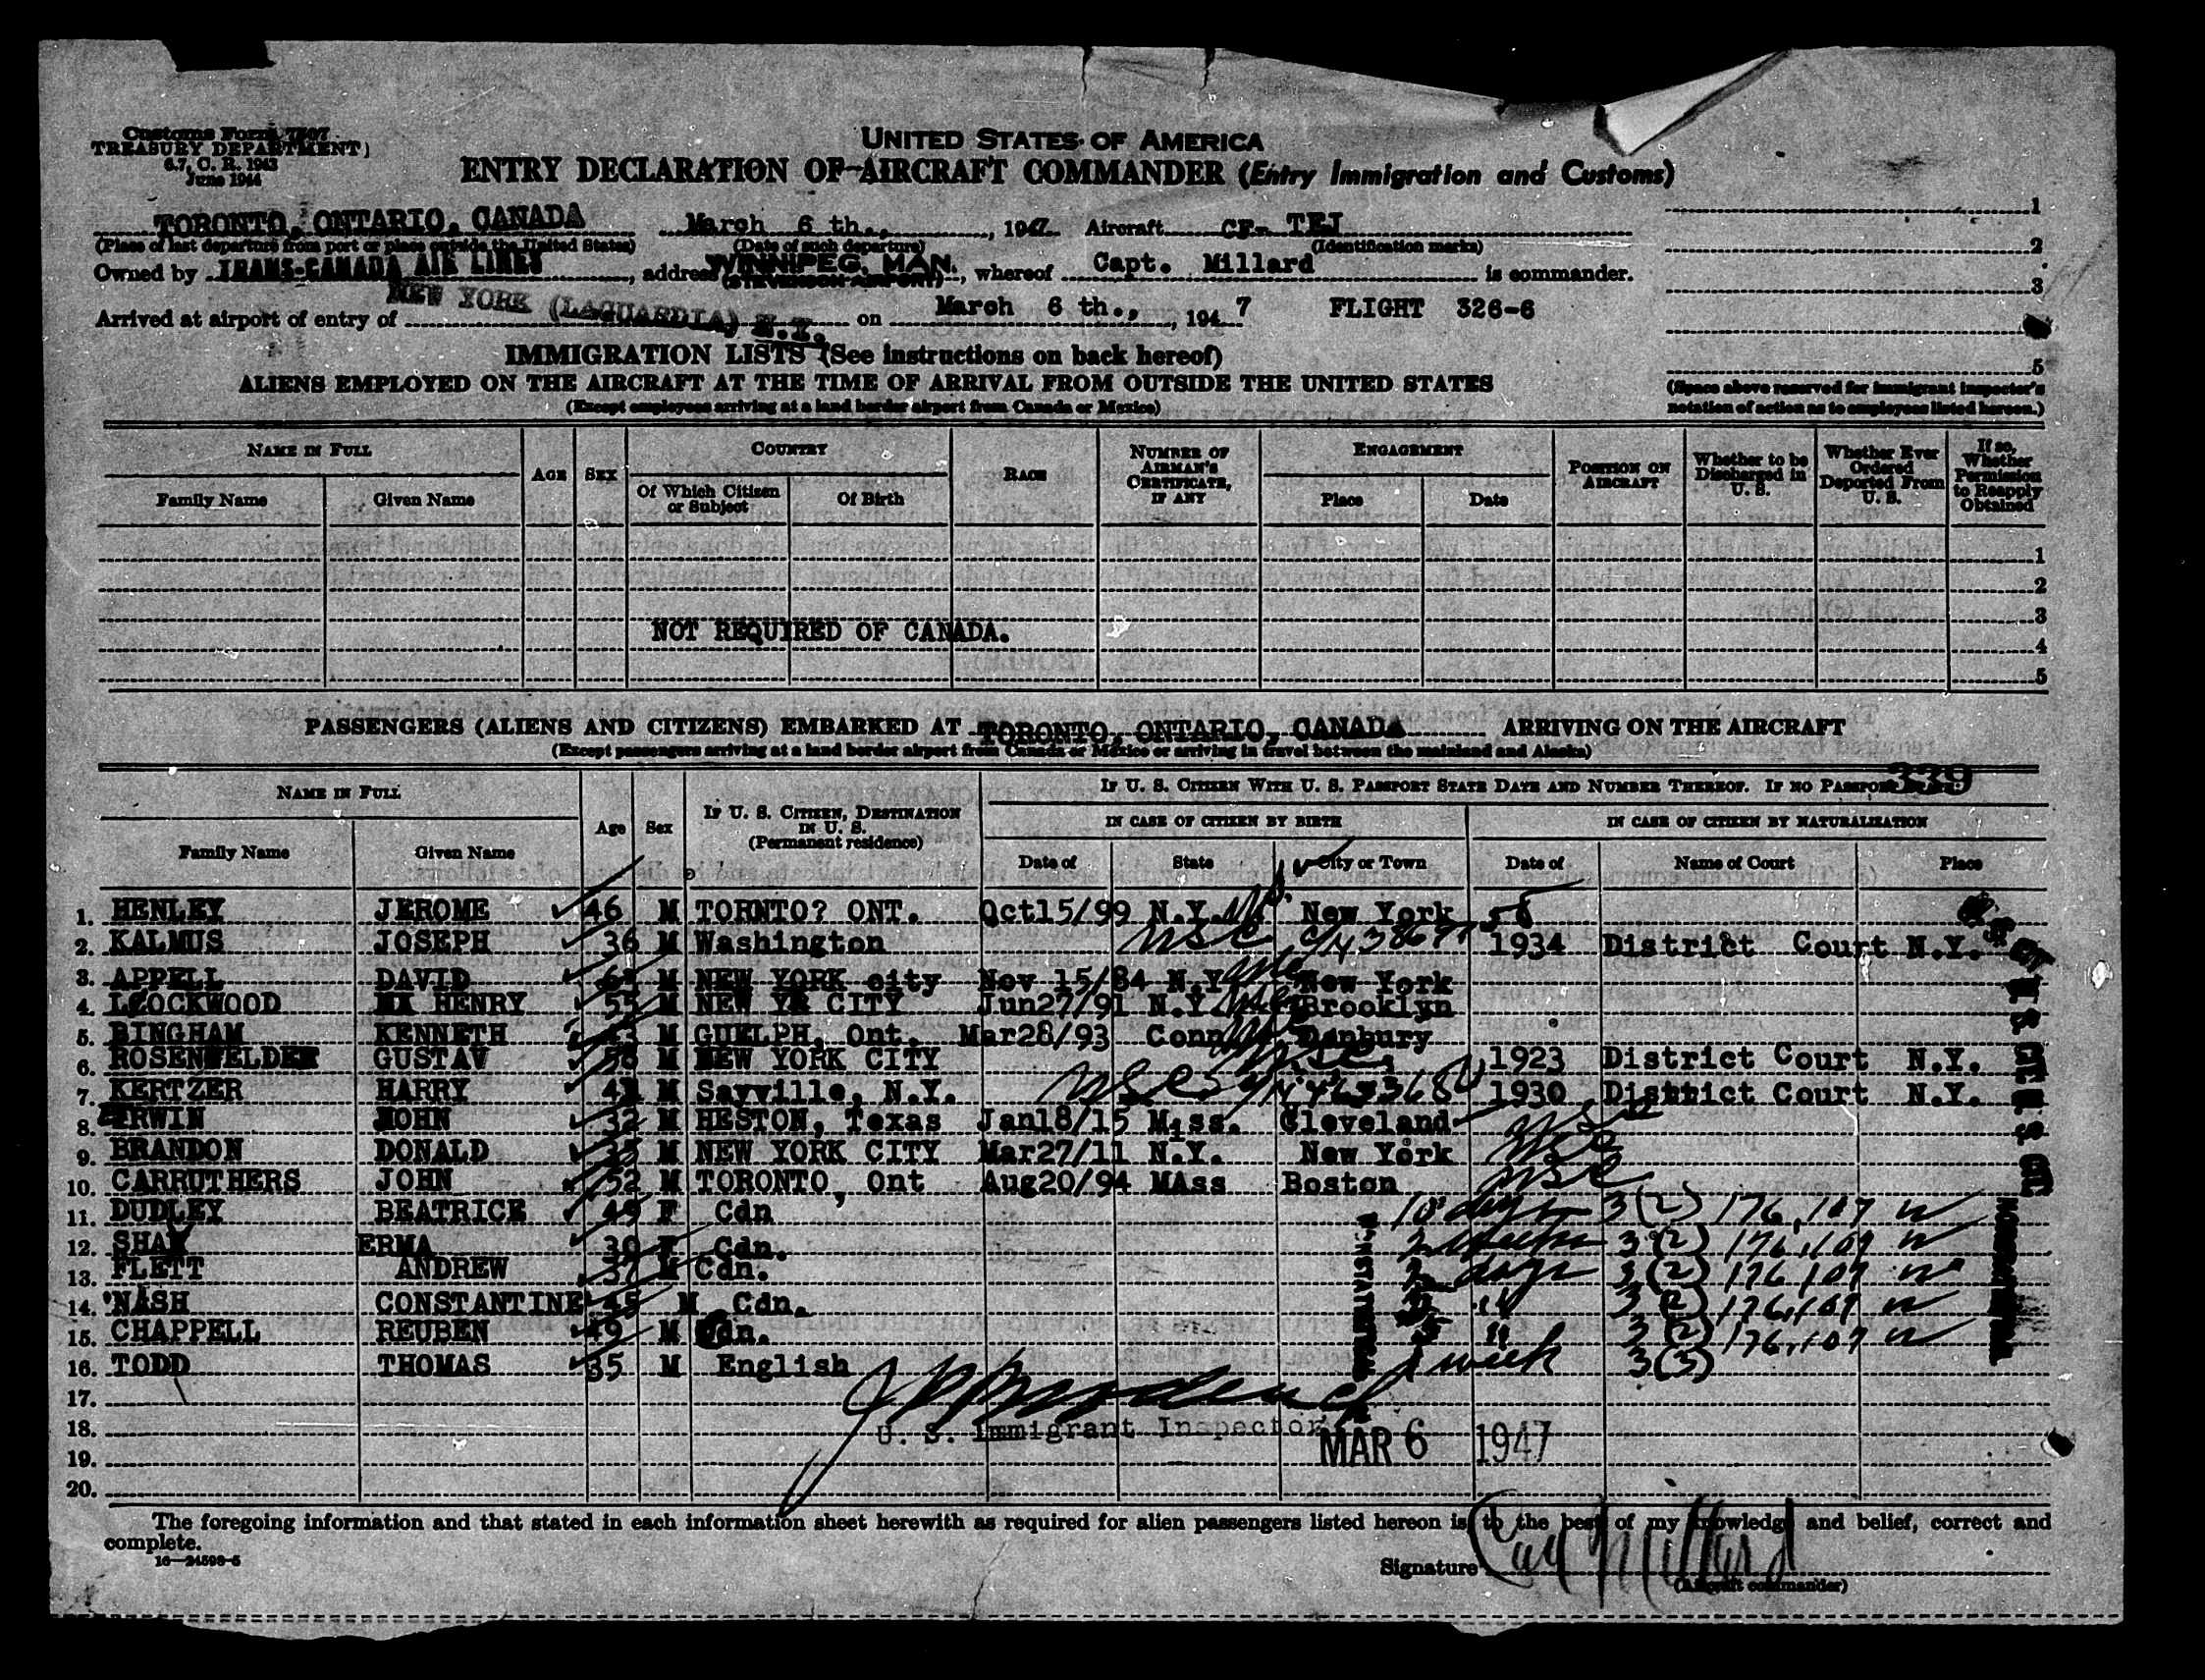 Customs Form 7507
TREASURY DEPARTMENT
6.7, C. R. 1943
June 1944
UNITED STATES OF AMERICA
ENTRY DECLARATION OF AIRCRAFT COMMANDER (Entry Immigration and Customs)
TORONTO, ONTARIO, CANADA March 6 th., 1947 Aircraft CF- TEJ
(Place of last departure from port or place outside the United States) (Date of such departure) (Identification marks)
Owned by TRANS-CANADA AIR LINES, address WINNIPEG, MAN. (STEVENSON AIRPORT), whereof Capt. Millard is commander.
Arrived at airport of entry of NEW YORK (LAGUARDIA) N.Y. on March 6 th., 1947 FLIGHT 326-6
1
2
3
5
(Space above reserved for immigrant inspector's notation of action as to employees listed hereon.)
IMMIGRATION LISTS (See instructions on back hereof)
ALIENS EMPLOYED ON THE AIRCRAFT AT THE TIME OF ARRIVAL FROM OUTSIDE THE UNITED STATES
(Except employees arriving at a land border airport from Canada or Mexico)
NAME IN FULL AGE SEX COUNTRY RACE NUMBER OF AIRMAN'S CERTIFICATE, IF ANY ENGAGEMENT POSITION ON AIRCRAFT Whether to be Discharged in U. S. Whether Ever Ordered Deported From U. S. If so, Whether Permission to Reapply Obtained
Family Name Given Name Of Which Citizen or Subject Of Birth Place Date
1
2
3
NOT REQUIRED OF CANADA.
4
5
PASSENGERS (ALIENS AND CITIZENS) EMBARKED AT TORONTO, ONTARIO, CANADA ARRIVING ON THE AIRCRAFT
(Except passengers arriving at a land border airport from Canada or Mexico or arriving in travel between the mainland and Alaska)
339
NAME IN FULL Age Sex IF U. S. CITIZEN, DESTINATION IN U. S. (Permanent residence) IF U. S. CITIZEN WITH U. S. PASSPORT STATE DATE AND NUMBER THEREOF. IF NO PASSPORT
IN CASE OF CITIZEN BY BIRTH IN CASE OF CITIZEN BY NATURALIZATION
Family Name Given Name Date of State City or Town Date of Name of Court Place
1. HENLEY JEROME 46 M TORNTO? ONT. Oct15/99 N.Y. New York
2. KALMUS JOSEPH 36 M Washington 1934 District Court N.Y.
3. APPELL DAVID M NEW YORK city Nov 15/84 N.Y. New York
4. LOCKWOOD HENRY 55 M NEW YR CITY Jun27/91 N.Y. Brooklyn
5. BINGHAM KENNETH M GUELPH, Ont. Mar28/93 Conn Danbury
6. ROSENFELDER GUSTAV M NEW YORK CITY 1923 District Court N.Y.
7. KERTZER HARRY M Sayville, N.Y. 1930 District Court N.Y.
8. ERWIN JOHN 32 M HESTON, Texas Jan18/15 Miss. Cleveland
9. BRANDON DONALD 35 M NEW YORK CITY Mar27/11 N.Y. New York
10. CARRUTHERS JOHN 52 M TORONTO, Ont Aug20/94 MAss Boston
11. DUDLEY BEATRICE F Cdn 10 days 3(2) 176,107
12. SHAW ERMA 30 F Cdn. 3(2) 176,109
13. FLETT ANDREW 37 M Cdn. days 3(2) 176,107
14. NASH CONSTANTINE 45 M Cdn. 3(2) 176,109
15. CHAPPELL REUBEN 49 M Cdn. 5 " 3(2) 176,109
16. TODD THOMAS 35 M English 1 week 3(3)
17.
18. U. S. Immigrant Inspector MAR 6 1947
19.
20.
The foregoing information and that stated in each information sheet herewith as required for alien passengers listed hereon is to the best of my knowledge and belief, correct and
complete.
16—24598-5
Signature Capt Millard
(Aircraft commander)